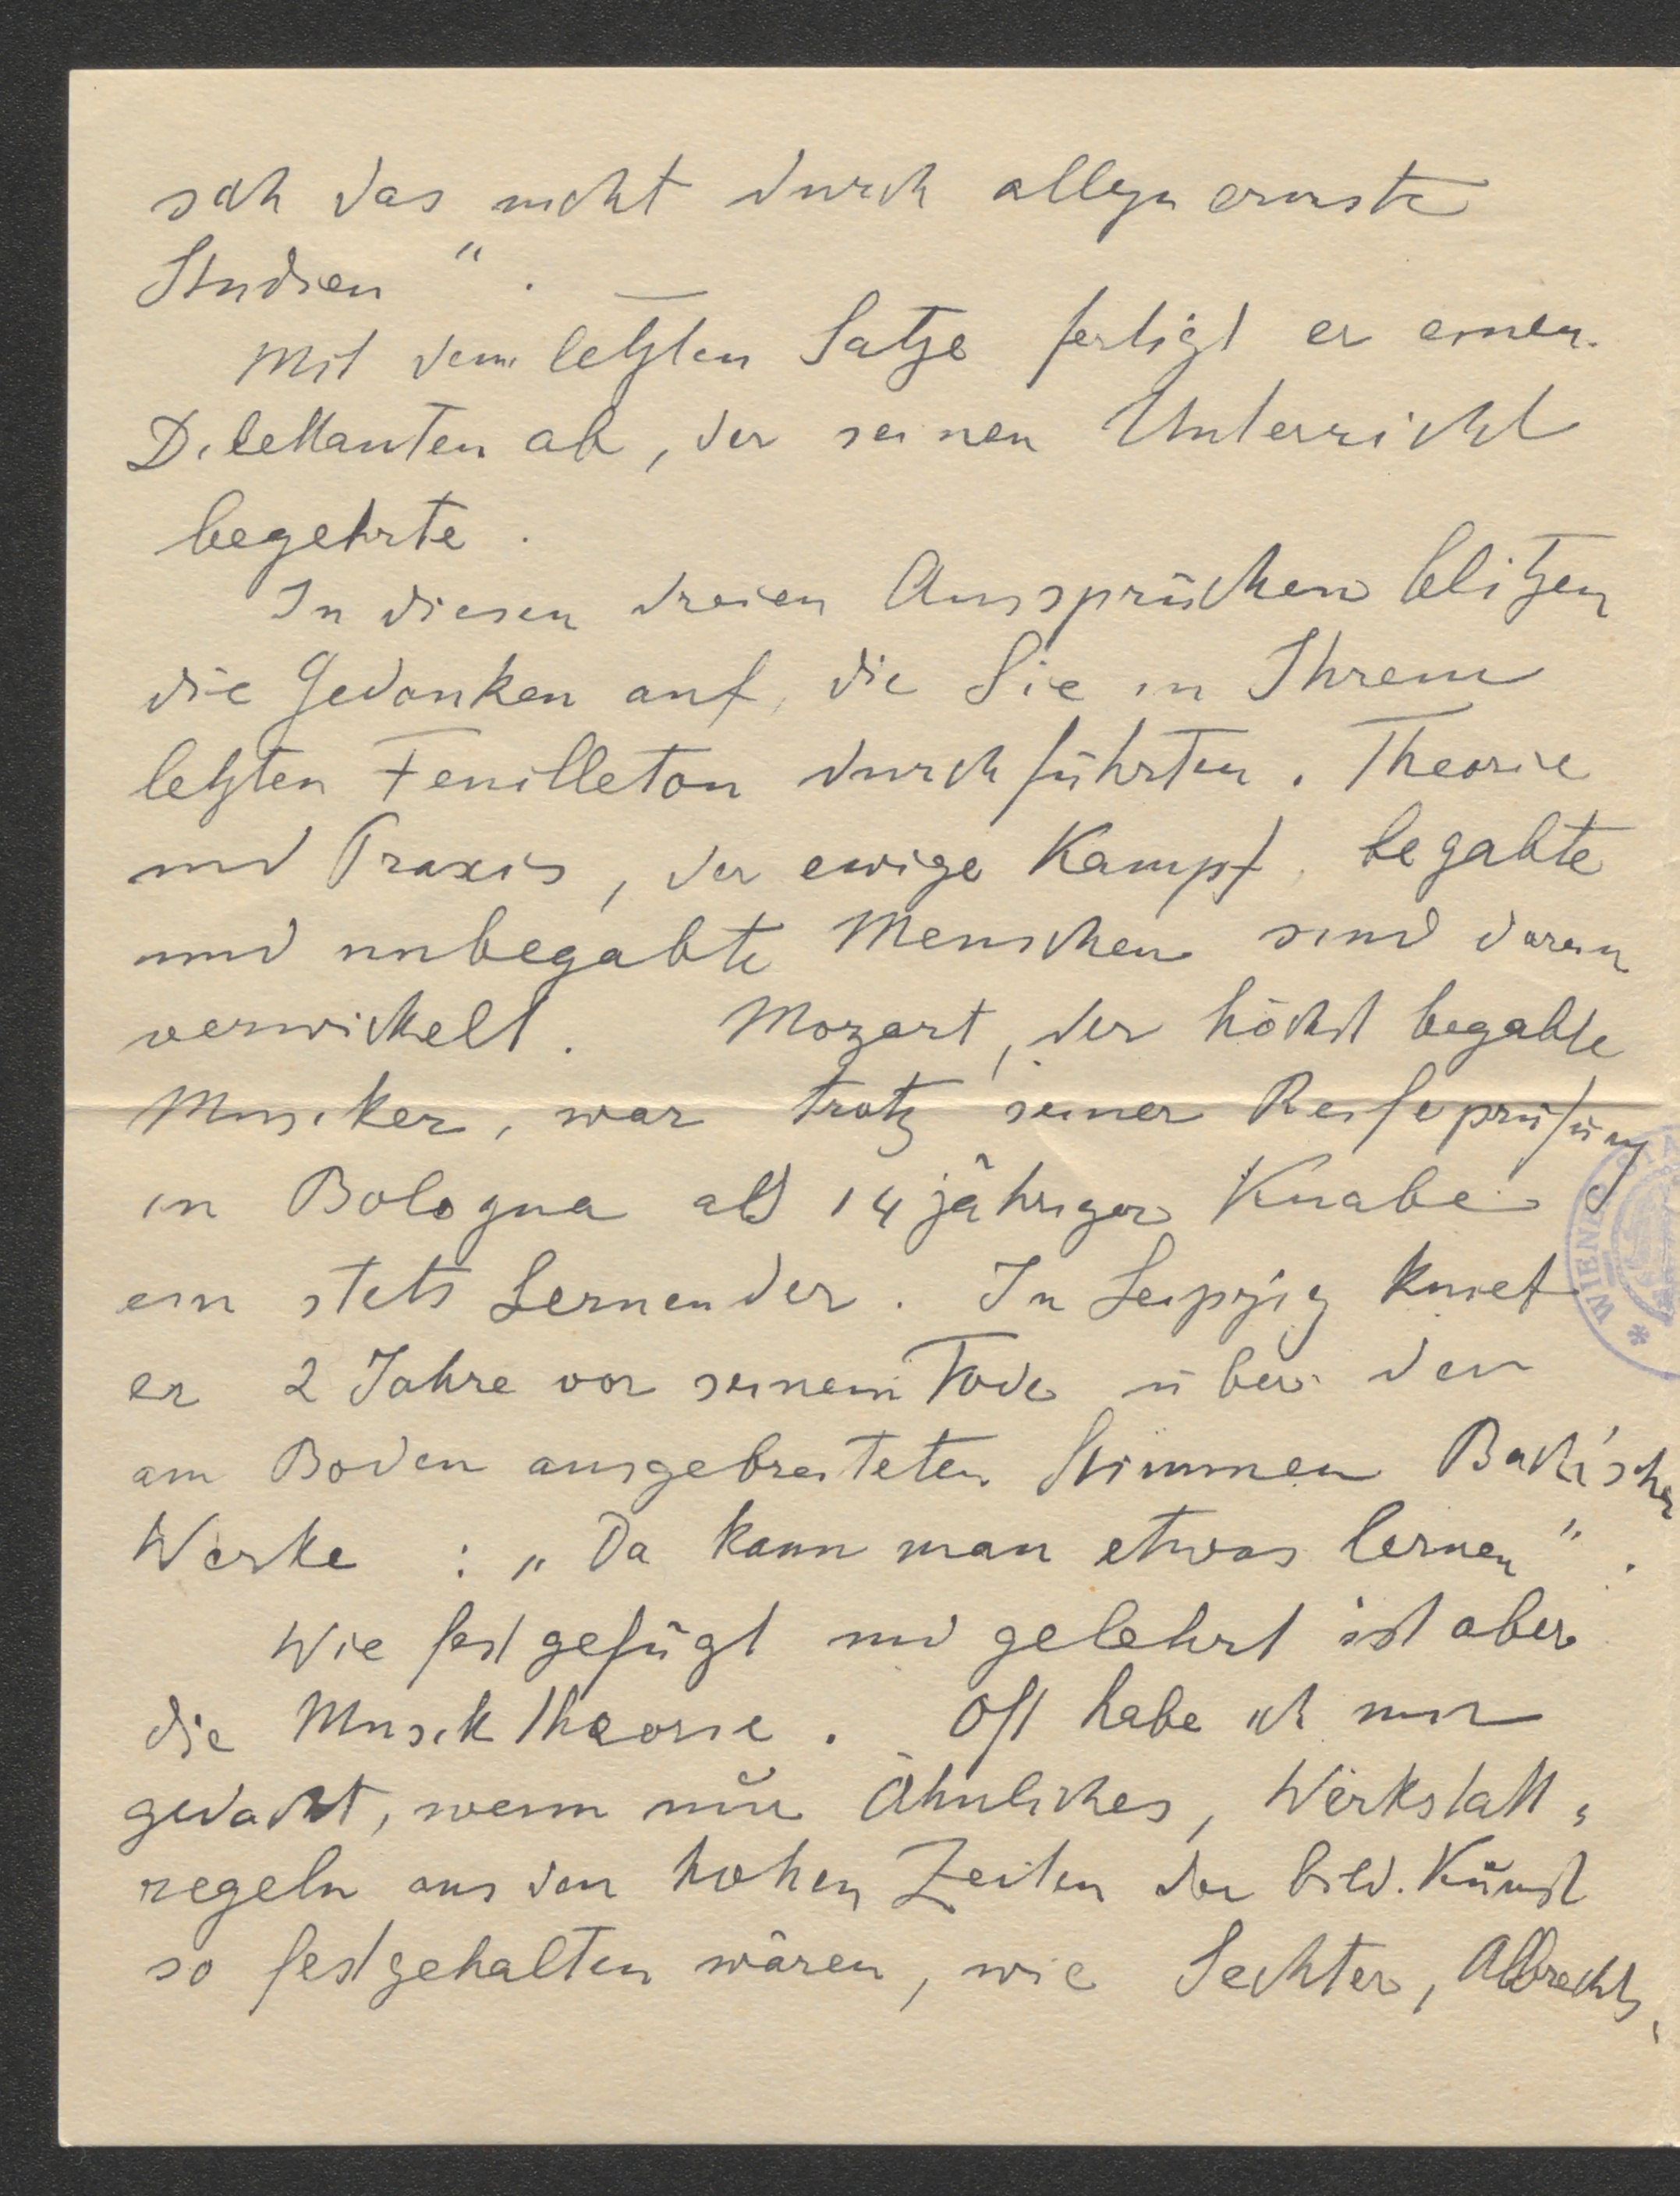 sich das nicht durch allzu ernste
Studien".
Mit dem letzten Satze fertigt er einen
Dilettanten ab, der seinen Unterricht
begehrte.
In diesen dreien Aussprüchen blitzen
die Gedanken auf, die Sie in Ihrem
letzten Feuilleton durchführten. Theorie
und Praxis, der ewige Kampf, begabte
und unbegabte Menschen sind darein
verwickelt. Mozart, der höchst begabte
Musiker, war trotz seiner Reifeprüfung
in Bologna als 14 jähriger Knabe
ein stets Lernender. In Leipzig kniet
er 2 Jahre vor seinem Tode über den
am Boden ausgebreiteten Stimmen Bach'scher
Werke : „Da kann man etwas lernen".
Wie festgefügt und gelehrt ist aber
die Musiktheorie. Oft habe ich mir
gedacht, wenn nur Ähnliches, Werkstatt-
regeln aus den hohen Zeiten der bild. Kunst
so festgehalten wären, wie Sechter, Albrechts-
WIENER